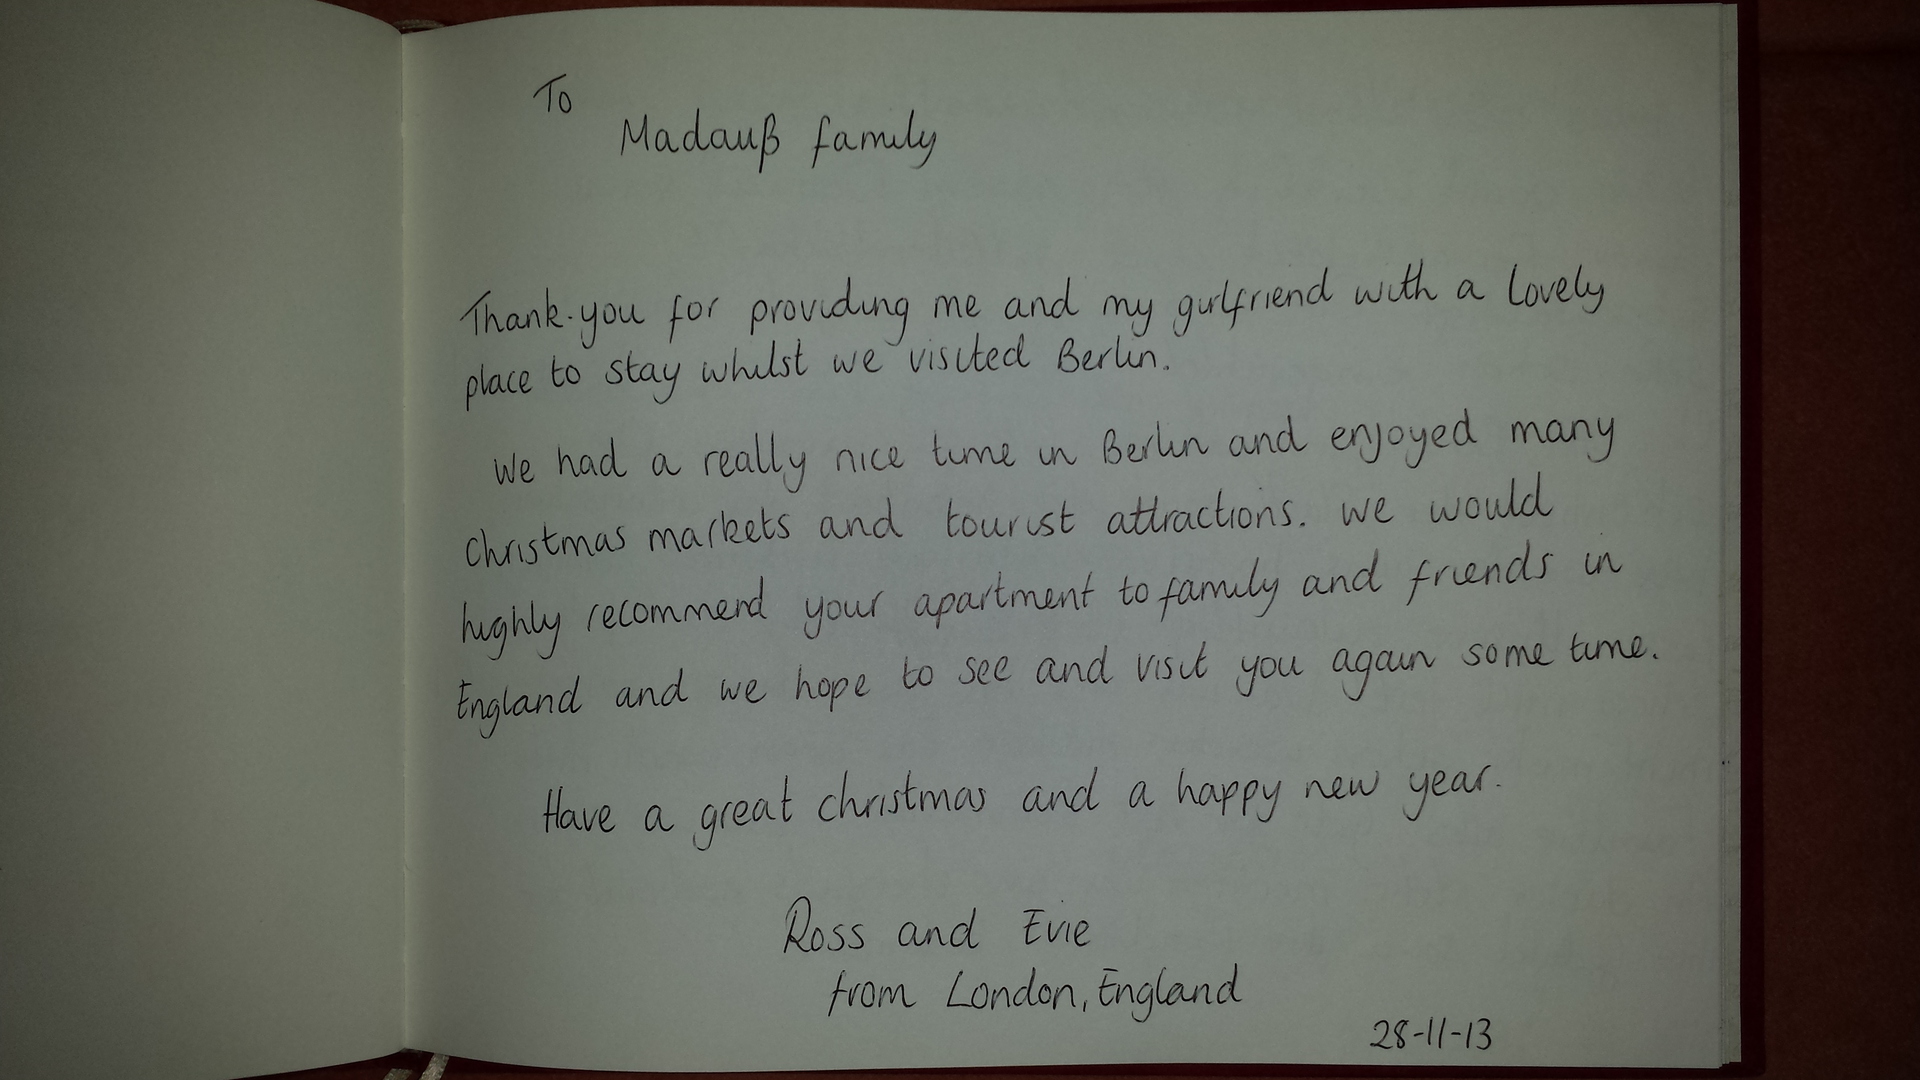 To
Madauß family
Thank-you for providing me and my girlfriend with a lovely
place to stay whilst we visited Berlin.
We had a really nice time in Berlin and enjoyed many
christmas markets and tourist attractions. We would
highly recommend your apartment to family and friends in
England and we hope to see and visit you again some time.
Have a great christmas and a happy new year.
Ross and Evie
from London, England
28-11-13